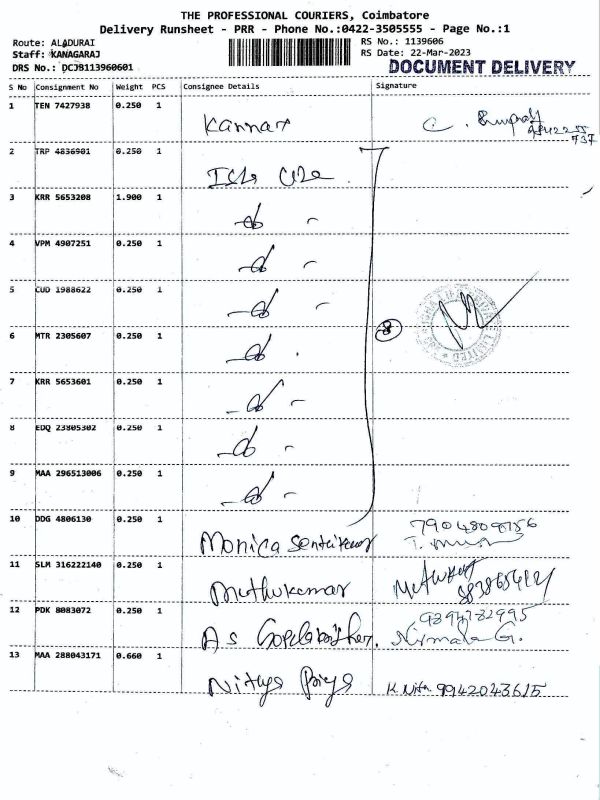 THE PROFESSIONAL COURIERS, Coimbatore
Delivery Runsheet - PRR - Phone No.:0422-3505555 - Page No.:1
Route: ALADURAI
Staff: KANAGARAJ
DRS No.: DCJB113960601
RS No.: 1139606
RS Date: 22-Mar-2023
DOCUMENT DELIVERY
S No Consignment No Weight PCS Consignee Details Signature
1 TEN 7427938 0.250 1 Kannan
2 TRP 4836901 0.250 1
3 KRR 5653208 1.900 1
4 VPM 4907251 0.250 1
5 CUD 1988622 0.250 1
6 MTR 2305607 0.250 1
8
7 KRR 5653601 0.250 1
8 EDQ 23805302 0.250 1
9 MAA 296513006 0.250 1
10 DDG 4806130 0.250 1 Monica
11 SLM 316222140 0.250 1 Muthukumar
12 PDK 8083072 0.250 1 A S Nirmala G.
13 MAA 288043171 0.660 1 Nithya Priya K. Nitha 9942043615